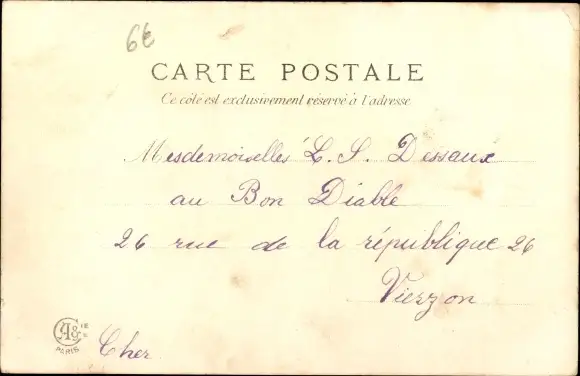 6€
CARTE POSTALE
Ce côté est exclusivement réservé à l'adresse
Mesdemoiselles L. S. Dessaux
au Bon Diable
26 rue de la république 26
Vierzon
Cher
PARIS